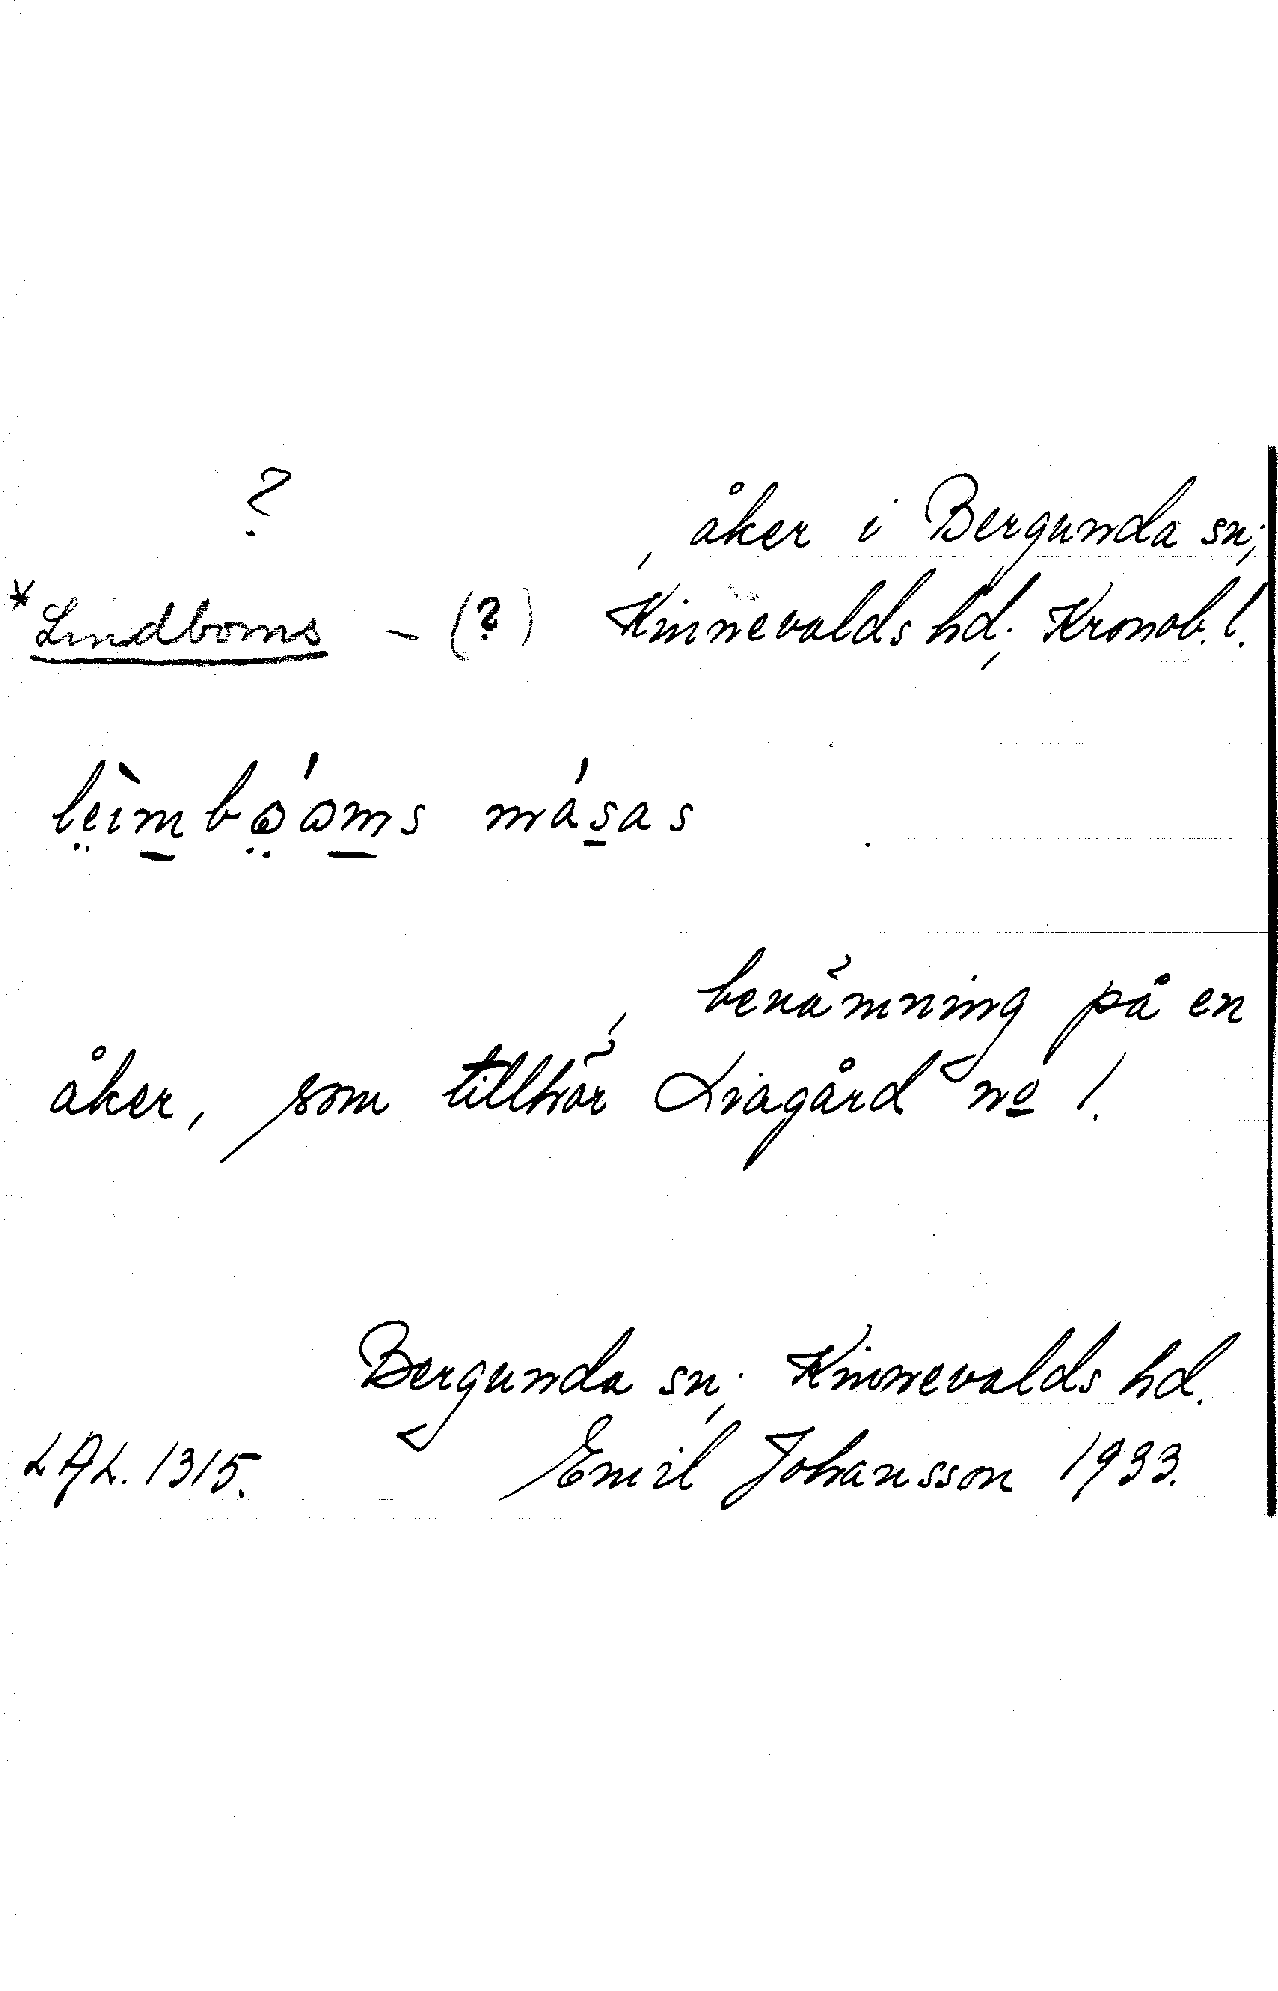 ?
, åker i Bergunda sn;
*Lindboms – (?) Kinnevalds hd; Kronob. l.
måsas
, benämning på en
åker, som tillhör Liagård no 1.
Bergunda sn; Kinnevalds hd.
LAL. 1315. Emil Johansson 1933.